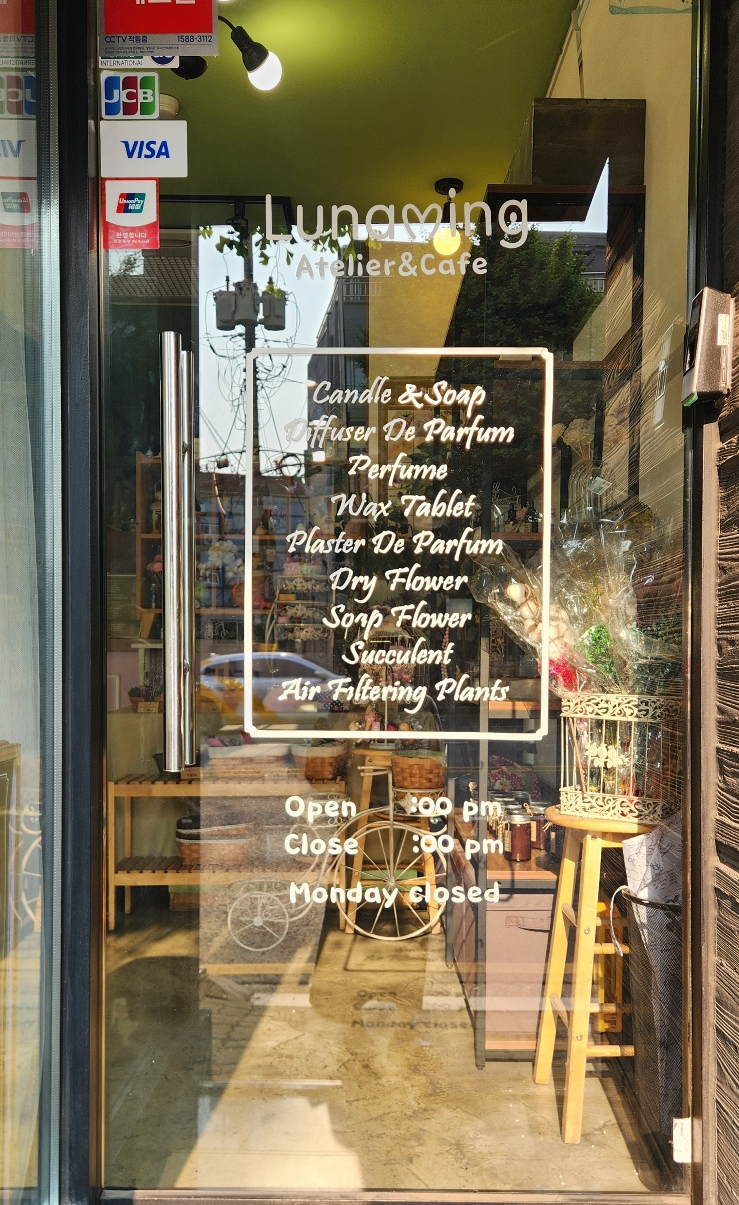 CCTV 작동중 1588-3112
INTERNATIONAL
JCB
VISA
UnionPay
银联
환영합니다
Lunaming
Atelier&Cafe
Candle &Soap
Diffuser De Parfum
Perfume
Wax Tablet
Plaster De Parfum
Dry Flower
Soap Flower
Succulent
Air Filtering Plants
Open :00 pm
Close :00 pm
Monday closed